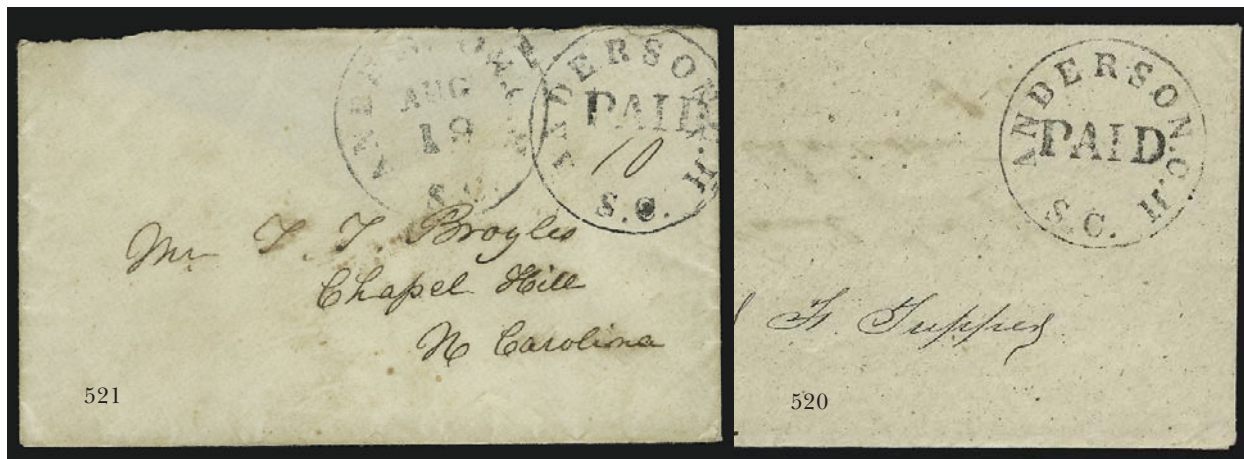 ANDERSON C.H.
AUG
19
S.C.
ANDERSON C.H.
PAID
10
S.C.
Mr T. T. Broyles
Chapel Hill
N Carolina
521
ANDERSON C.H.
PAID
S.C.
F. Tupper
520